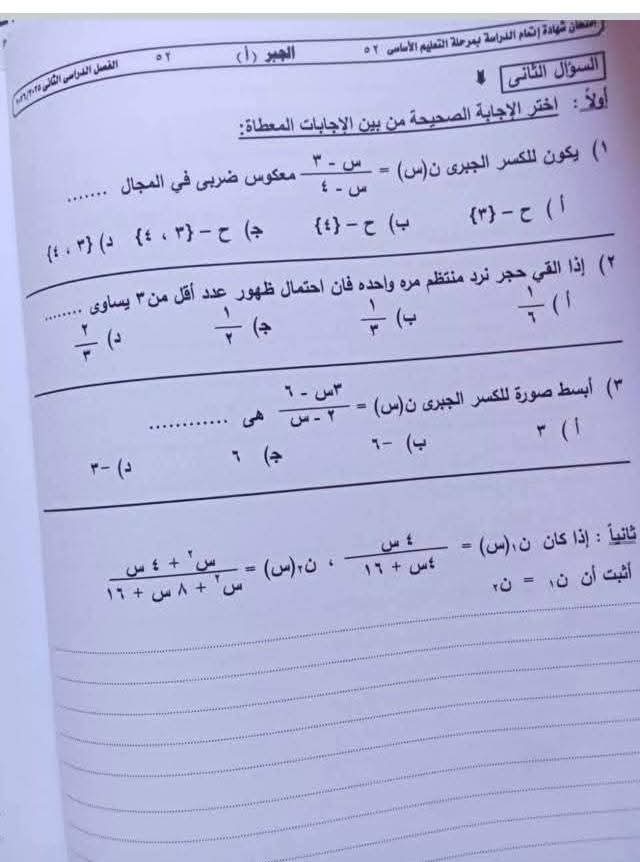 امتحان شهادة إتمام الدراسة بمرحلة التعليم الأساسي ٥٢ الجبر (أ) ٥٢ الفصل الدراسي الثاني ٢٠٢٦/٢٠٢٥
السؤال الثانى
أولاً : اختر الإجابة الصحيحة من بين الإجابات المعطاة:
١) يكون للكسر الجبرى ن(س) = (س - ٣)/(س - ٤) معكوس ضربى في المجال .......
أ ) ح - {٣} ب) ح - {٤} ج) ح - {٣ ، ٤} د) {٣ ، ٤}
٢) إذا القي حجر نرد منتظم مره واحده فان احتمال ظهور عدد أقل من ٣ يساوى ........
أ ) ١/٦ ب) ١/٣ ج) ١/٢ د) ٢/٣
٣) أبسط صورة للكسر الجبرى ن(س) = (٣س - ٦)/(٢ - س) هى ............
أ ) ٣ ب) -٦ ج) ٦ د) -٣
ثانياً : إذا كان ن١(س) = ٤ س/(٤س + ١٦) ، ن٢(س) = (س٢ + ٤ س)/(س٢ + ٨ س + ١٦)
أثبت أن ن١ = ن٢